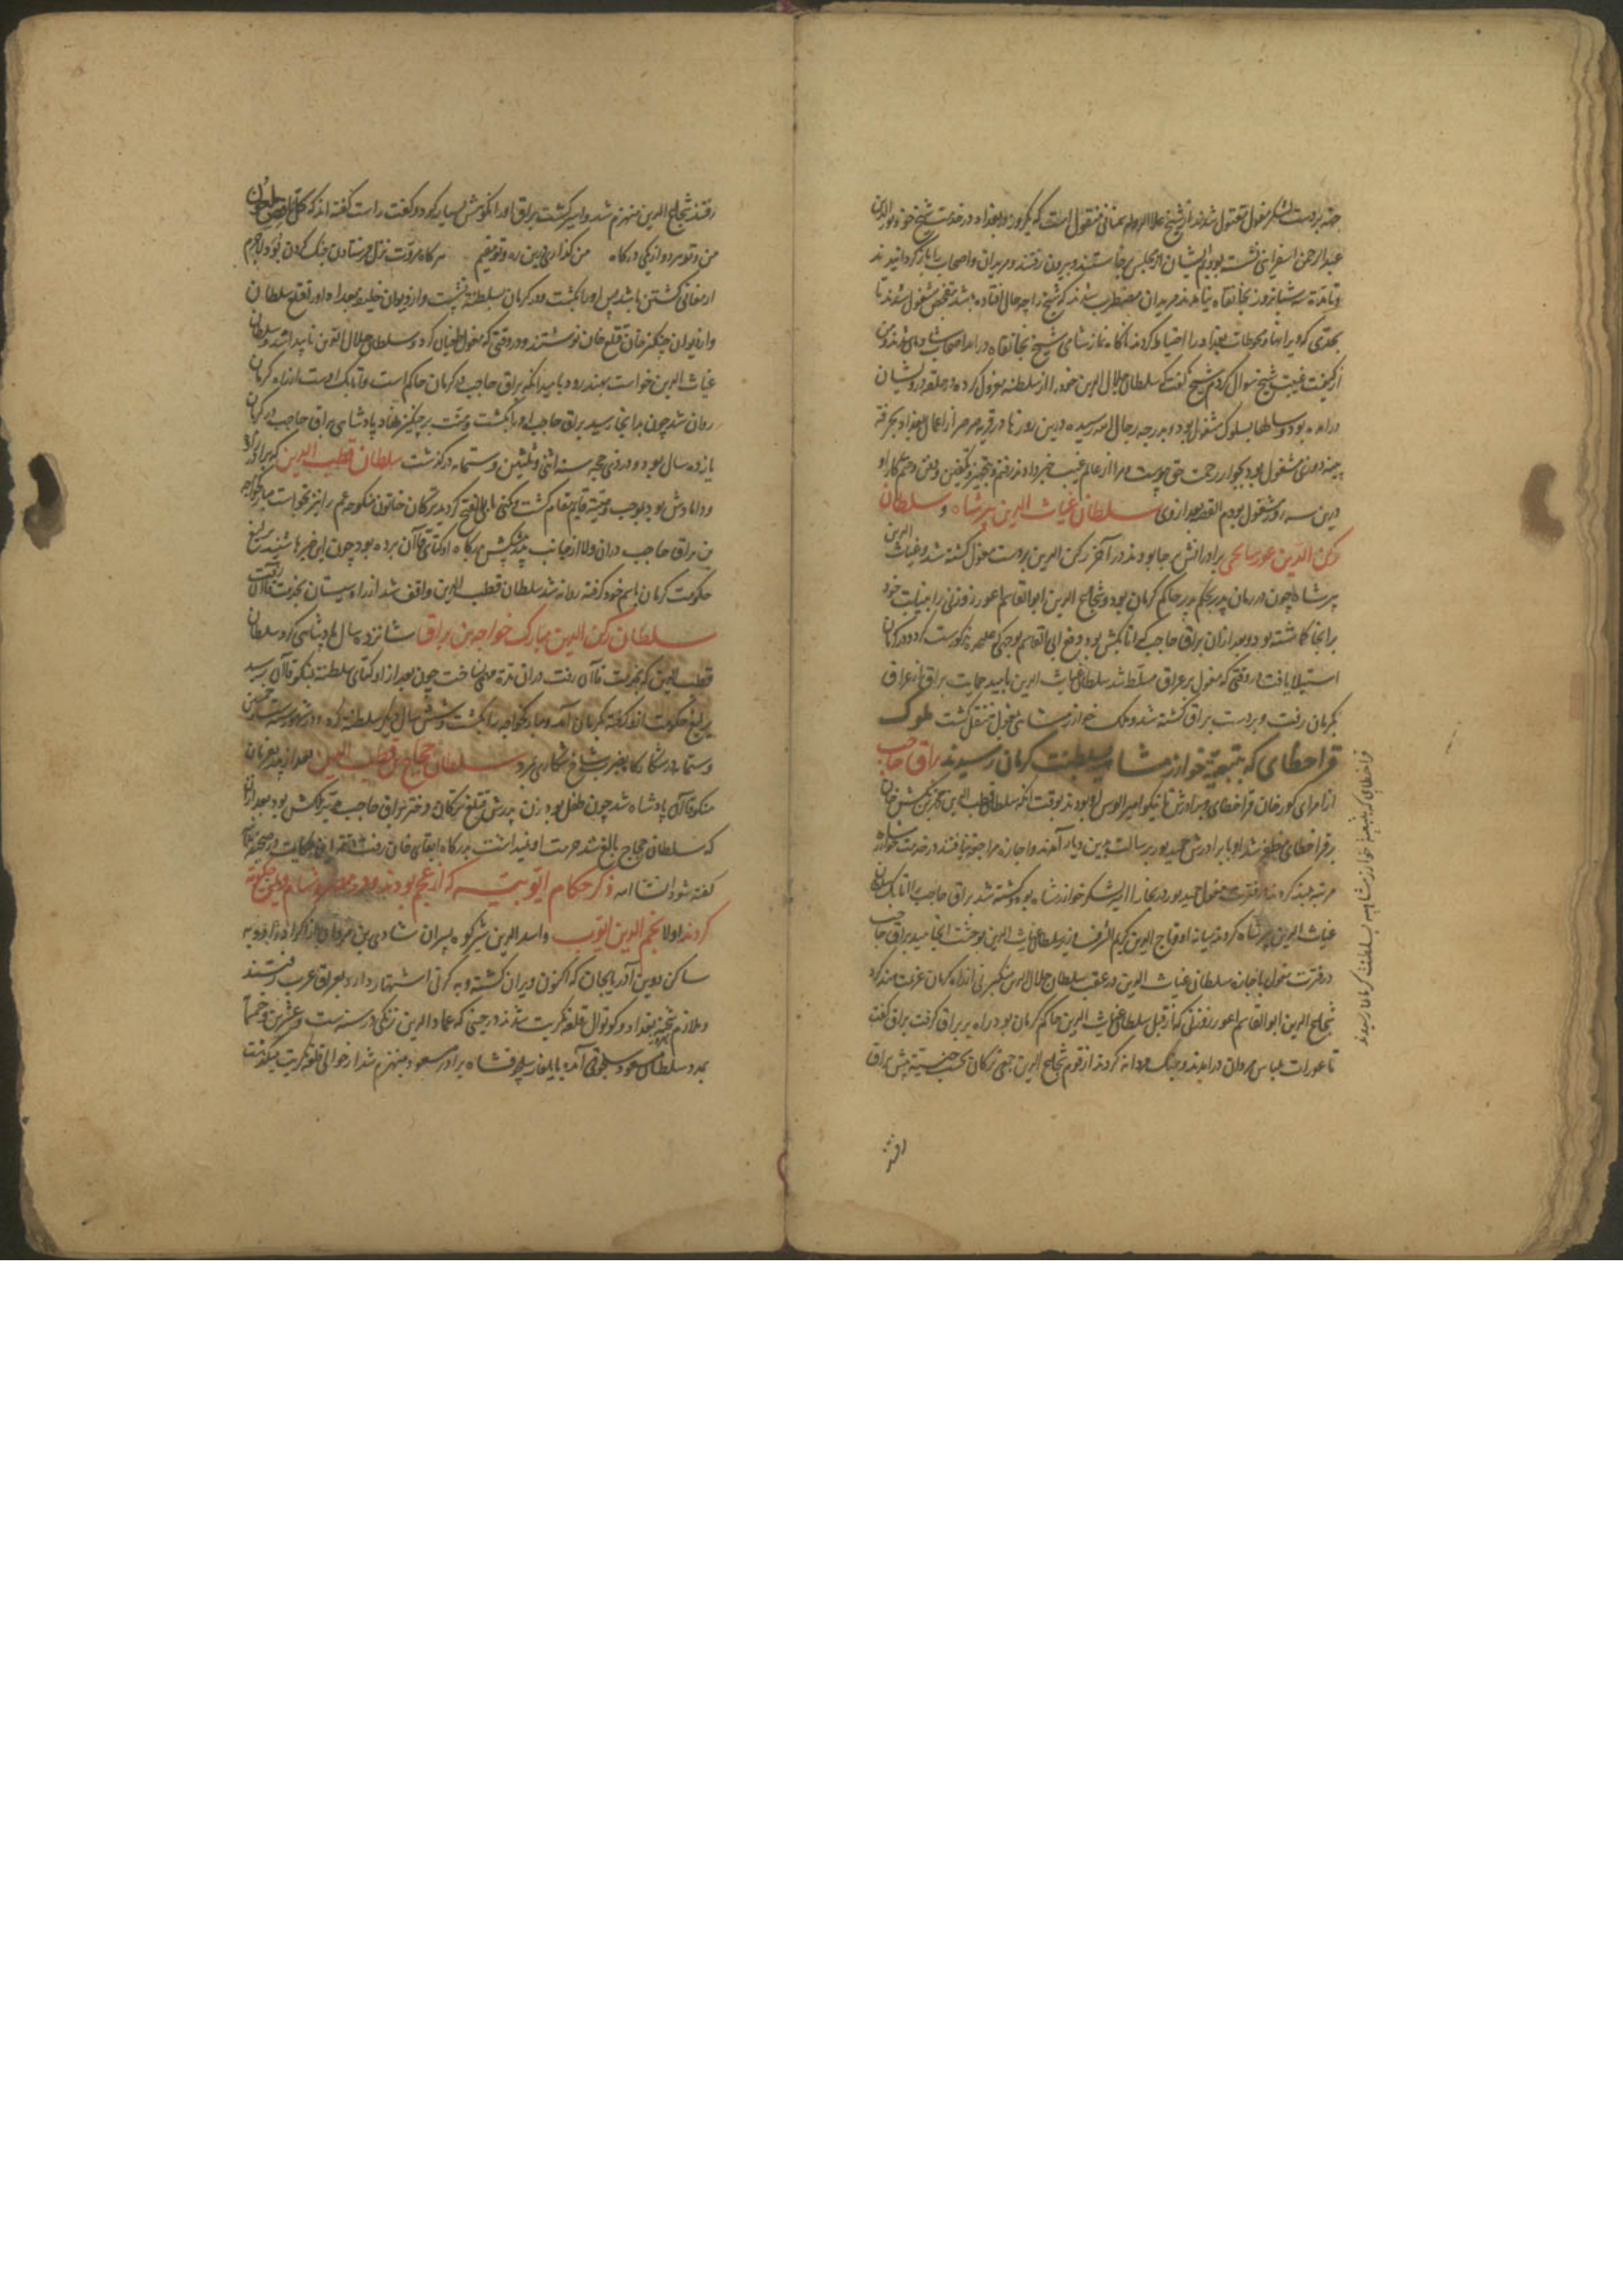 جثه بردست لشکر مغول مقتول شدند از شیخ علاالدوله سمنانی منقول است که یکروز در بغداد در خدمت شیخ خود نورالدین
عبدالرحمن اسفراینی نشسته بودیم ایشان از مجلس برخاستند و بیرون رفتند و مریدان و اصحاب را بازگردانیدند
و تا مدة سه شبانروز بخانقاه نیامدند مریدان مضطرب شدند که شیخ را چه حال افتاده باشد بتفحص مشغول شدند تا
بحدی که ویرانها و محوطات بغداد را احتیاط کردند ناکاه نماز شامی شیخ بخانقاه درامد اصحاب
از کیفیت غیبت شیخ سوال کردم شیخ گفت که سلطان جلال الدین خود را از سلطنه معزول کرده در حلقه درویشان
درامده بود و سالها بسلوک مشغول بود و بدرجه رجال الله رسیده درین روزها در قریه صرصر از اعمال بغداد بحرفة
پینه دوزی مشغول بود بجوار رحمت حق پیوست مرا از عالم غیب خبر دادند رفتم و بتجهیز و تکفین و دفن و ختم کار او
درین سه روز مشغول بودم القصه بعد از وی سلطان غیاث الدین پیرشاه و سلطان
رکن الدین غورسانجی برادرانش برجا بودند در آخر رکن الدین بردست مغول کشته شد و غیاث الدین
پیرشاه چون در زمان پدر بحکم پدر حاکم کرمان بود و شجاع الدین ابوالقاسم اعور زوزنی را بنیابت خود
برانجا کماشته بود و بعد ازان براق حاجب که اتابکش بود و فع ابی القاسم بوجهی که مذکورست کرد و در کرمان
استیلا یافت در وقتی که مغول بر عراق مسلط شد سلطان غیاث الدین بامید حمایت براق از عراق
بکرمان رفت و بردست براق کشته شد و ملک خوارزمشاهی بمغول منتقل کشت ملوک
قراخطای که بتبعیة خوارزمشاهیه بسلطنت کرمان رسیدند براق حاجب
از امرای کورخان قراخطای و برادرش تانیکو امیر الوس او بودند بوقت انکه سلطان قطب الدین محمد بن تکش خان
بر قراخطای مظفر شد او با برادرش حمید بور برسالت بدین دیار آمدند و اجازه مراجعت نیافتند در خدمت خوارزمشاه
مرتبه بلند کردند در فترت مغول حمید بور در بخارا امیر لشکر خوارزمشاه بود کشته شد براق حاجب را اتابک سلطان
غیاث الدین پیرشاه کردند میانه او و تاج الدین کریم الشرف وزیر سلطان غیاث الدین بوحشت انجامید براق حاجب
در فترت مغول باجازه سلطان غیاث الدین در عقب سلطان جلال الدین منکبرنی از راه کرمان عزیمت هند کرد
شجاع الدین ابوالقاسم اعور زوزنی که از قبل سلطان غیاث الدین حاکم کرمان بود راه بر براق کرفت براق کفت
تا عورات لباس مردان درایدند و جنک مردانه کردند از قوم شجاع الدین جمعی ترکان بحسب جنسیت پیش براق
رفتند
قراخطای که بتبعیة خوارزمشاهیه بسلطنت کرمان رسیدند
رفتند شجاع الدین منهزم شد و اسیر کشت براق او را نکوهش بسیار کرد و کفت راست کفته اند که کل اعور ملعون
من و تو هر دو از یکی درکاه من گذاری این ره و تو مقیم هر کاه مروت نزل فرستادن جنک کردن بود لاجرم
ارمغانی کشتن باشد پس او را بکشت و در کرمان بسلطنة نشست و از دیوان خلیفه بغداد او را قتلغ سلطان
و از دیوان چنکیزخان قتلغ خان نوشتند و در وقتی که مغول طغیان کرد و سلطان جلال الدین ناپیدا شد و سلطان
غیاث الدین خواست بهند رود بامید انکه براق حاجب در کرمان حاکم است و اتابک اوست از راه کرمان
روان شد چون بدانجا رسید براق حاجب او را بکشت و منت بر چنکیز نهاد پادشاهی براق حاجب در کرمان
یازده سال بود و در ذی حجه سنه اثنی و ثلثین و ستمایه درکذشت سلطان قطب الدین که برادرزاده
و دامادش بود بموجب وصیة قایم مقام کشت و کنی بابی الفتح کردید ترکان خاتون منکوحه عم را نیز بخواست مبارکخواجه
بن براق حاجب دران ولا از جانب پدر به پیشکش بدرکاه اوکتای قاآن برده بود چون این خبرها شنید یرلیغ
حکومت کرمان باسم خود کرفته روانه شد سلطان قطب الدین واقف شد از راه سیستان بخدمت قاآن رفت
سلطان رکن الدین مبارک خواجه بن براق شانزده سال پادشاهی کرد سلطان
قطب الدین که بخدمت قاآن رفت دران مدة میساخت چون بعد از اوکتای سلطنة بمنکوقاآن رسید
یرلیغ حکومت انفد کرفته بکرمان آمد و مبارکخواجه را بکشت و شش سال دیکر سلطنة کرد و در شهور سنه ست و خمسین
و ستمایه در شکارکاه بضرب شاخ شکاری بمرد سلطان حجاج بن قطب الدین بعد از پدر بفرمان
منکوقاآن پادشاه شد چون طفل بود زن پدرش قتلغ ترکان دختر براق حاجب مدبر ملکش بود بعد ازان
که سلطان حجاج بالغ شد حرمت او نیداشت بدرکاه ابقای خان رفت
کفته شود انشاالله ذکر حکام ایوبیه که از عجم بودند و در مصر و شام و یمن حکومة
کردند اولا نجم الدین ایوب و اسد الدین شیرکوه پسران شادی بن مروان از اکراد
ساکن دوین آذربایجان که اکنون ویران کشته و به کرنی اشتهار دارد بعراق عرب رفتند
و ملازم شحنه بغداد و کوتوال قلعه تکریت شدند در حینی که عماد الدین زنکی در سنه ست و عشرین و خمسمایه
بمدد سلطان مسعود سلجوقی آمده بایلغار سلجوقشاه برادر مسعود منهزم شد از حوالی قلعه تکریت میکذشت